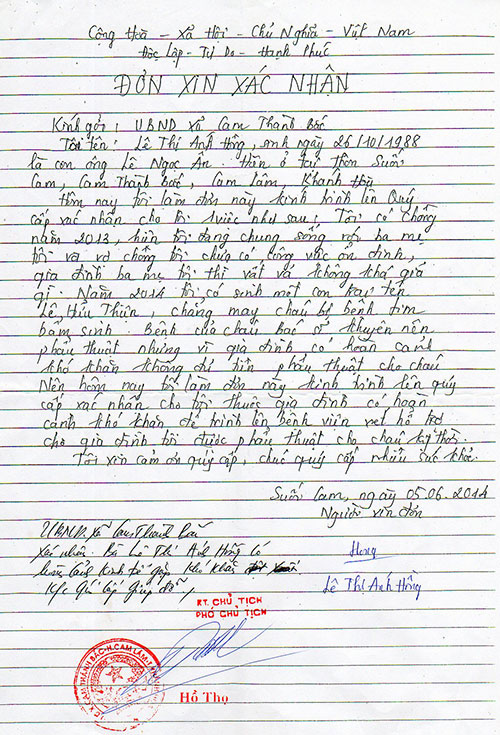 Cộng Hoà - Xã Hội - Chủ Nghĩa - Việt Nam
Độc Lập - Tự Do - Hạnh Phúc
ĐƠN XIN XÁC NHẬN
Kính gởi: UBND xã Cam Thành Bắc
Tôi tên: Lê Thị Anh Hồng, sinh ngày 26/10/1988
là con ông Lê Ngọc Ân. Hiện ở tại thôn Suối
Cam, Cam Thành Bắc, Cam Lâm, Khánh Hoà
Hôm nay tôi làm đơn này kính trình lên Quý
cấp xác nhận cho tôi 1 việc như sau: Tôi có chồng
năm 2013, hiện tôi đang chung sống với ba mẹ
tôi và vợ chồng tôi chưa có công việc ổn định,
gia đình ba mẹ tôi thì vất vả và không khá giả
gì. Năm 2014 tôi có sinh một con trai tên
Lê Hữu Thiện, chẳng may cháu bị bệnh tim
bẩm sinh. Bệnh của cháu bác sĩ khuyên nên
phẩu thuật nhưng vì gia đình có hoàn cảnh
khó khăn không đủ tiền phẩu thuật cho cháu
Nên hôm nay tôi làm đơn này kính trình lên quý
cấp xác nhận cho tôi thuộc gia đình có hoạn
cảnh khó khăn để trình lên bệnh viện xét hổ trợ
cho gia đình tôi được phẩu thuật cho cháu kịp thời.
Tôi xin cảm ơn quý cấp, chúc quý cấp nhiều sức khoẻ.
Suối Cam, ngày 05.06.2014
Người viết đơn
UBND xã Cam Thành Bắc
xác nhận. Bà Lê Thị Anh Hồng có
hoàn cảnh kinh tế gặp khó khăn
K/c Quí cấp giúp đỡ
Hồng
Lê Thị Anh Hồng
KT. CHỦ TỊCH
PHÓ CHỦ TỊCH
U.B.N.D X.CAM THÀNH BẮC-H.CAM LÂM-T.KHÁNH HÒA
Hồ Thọ